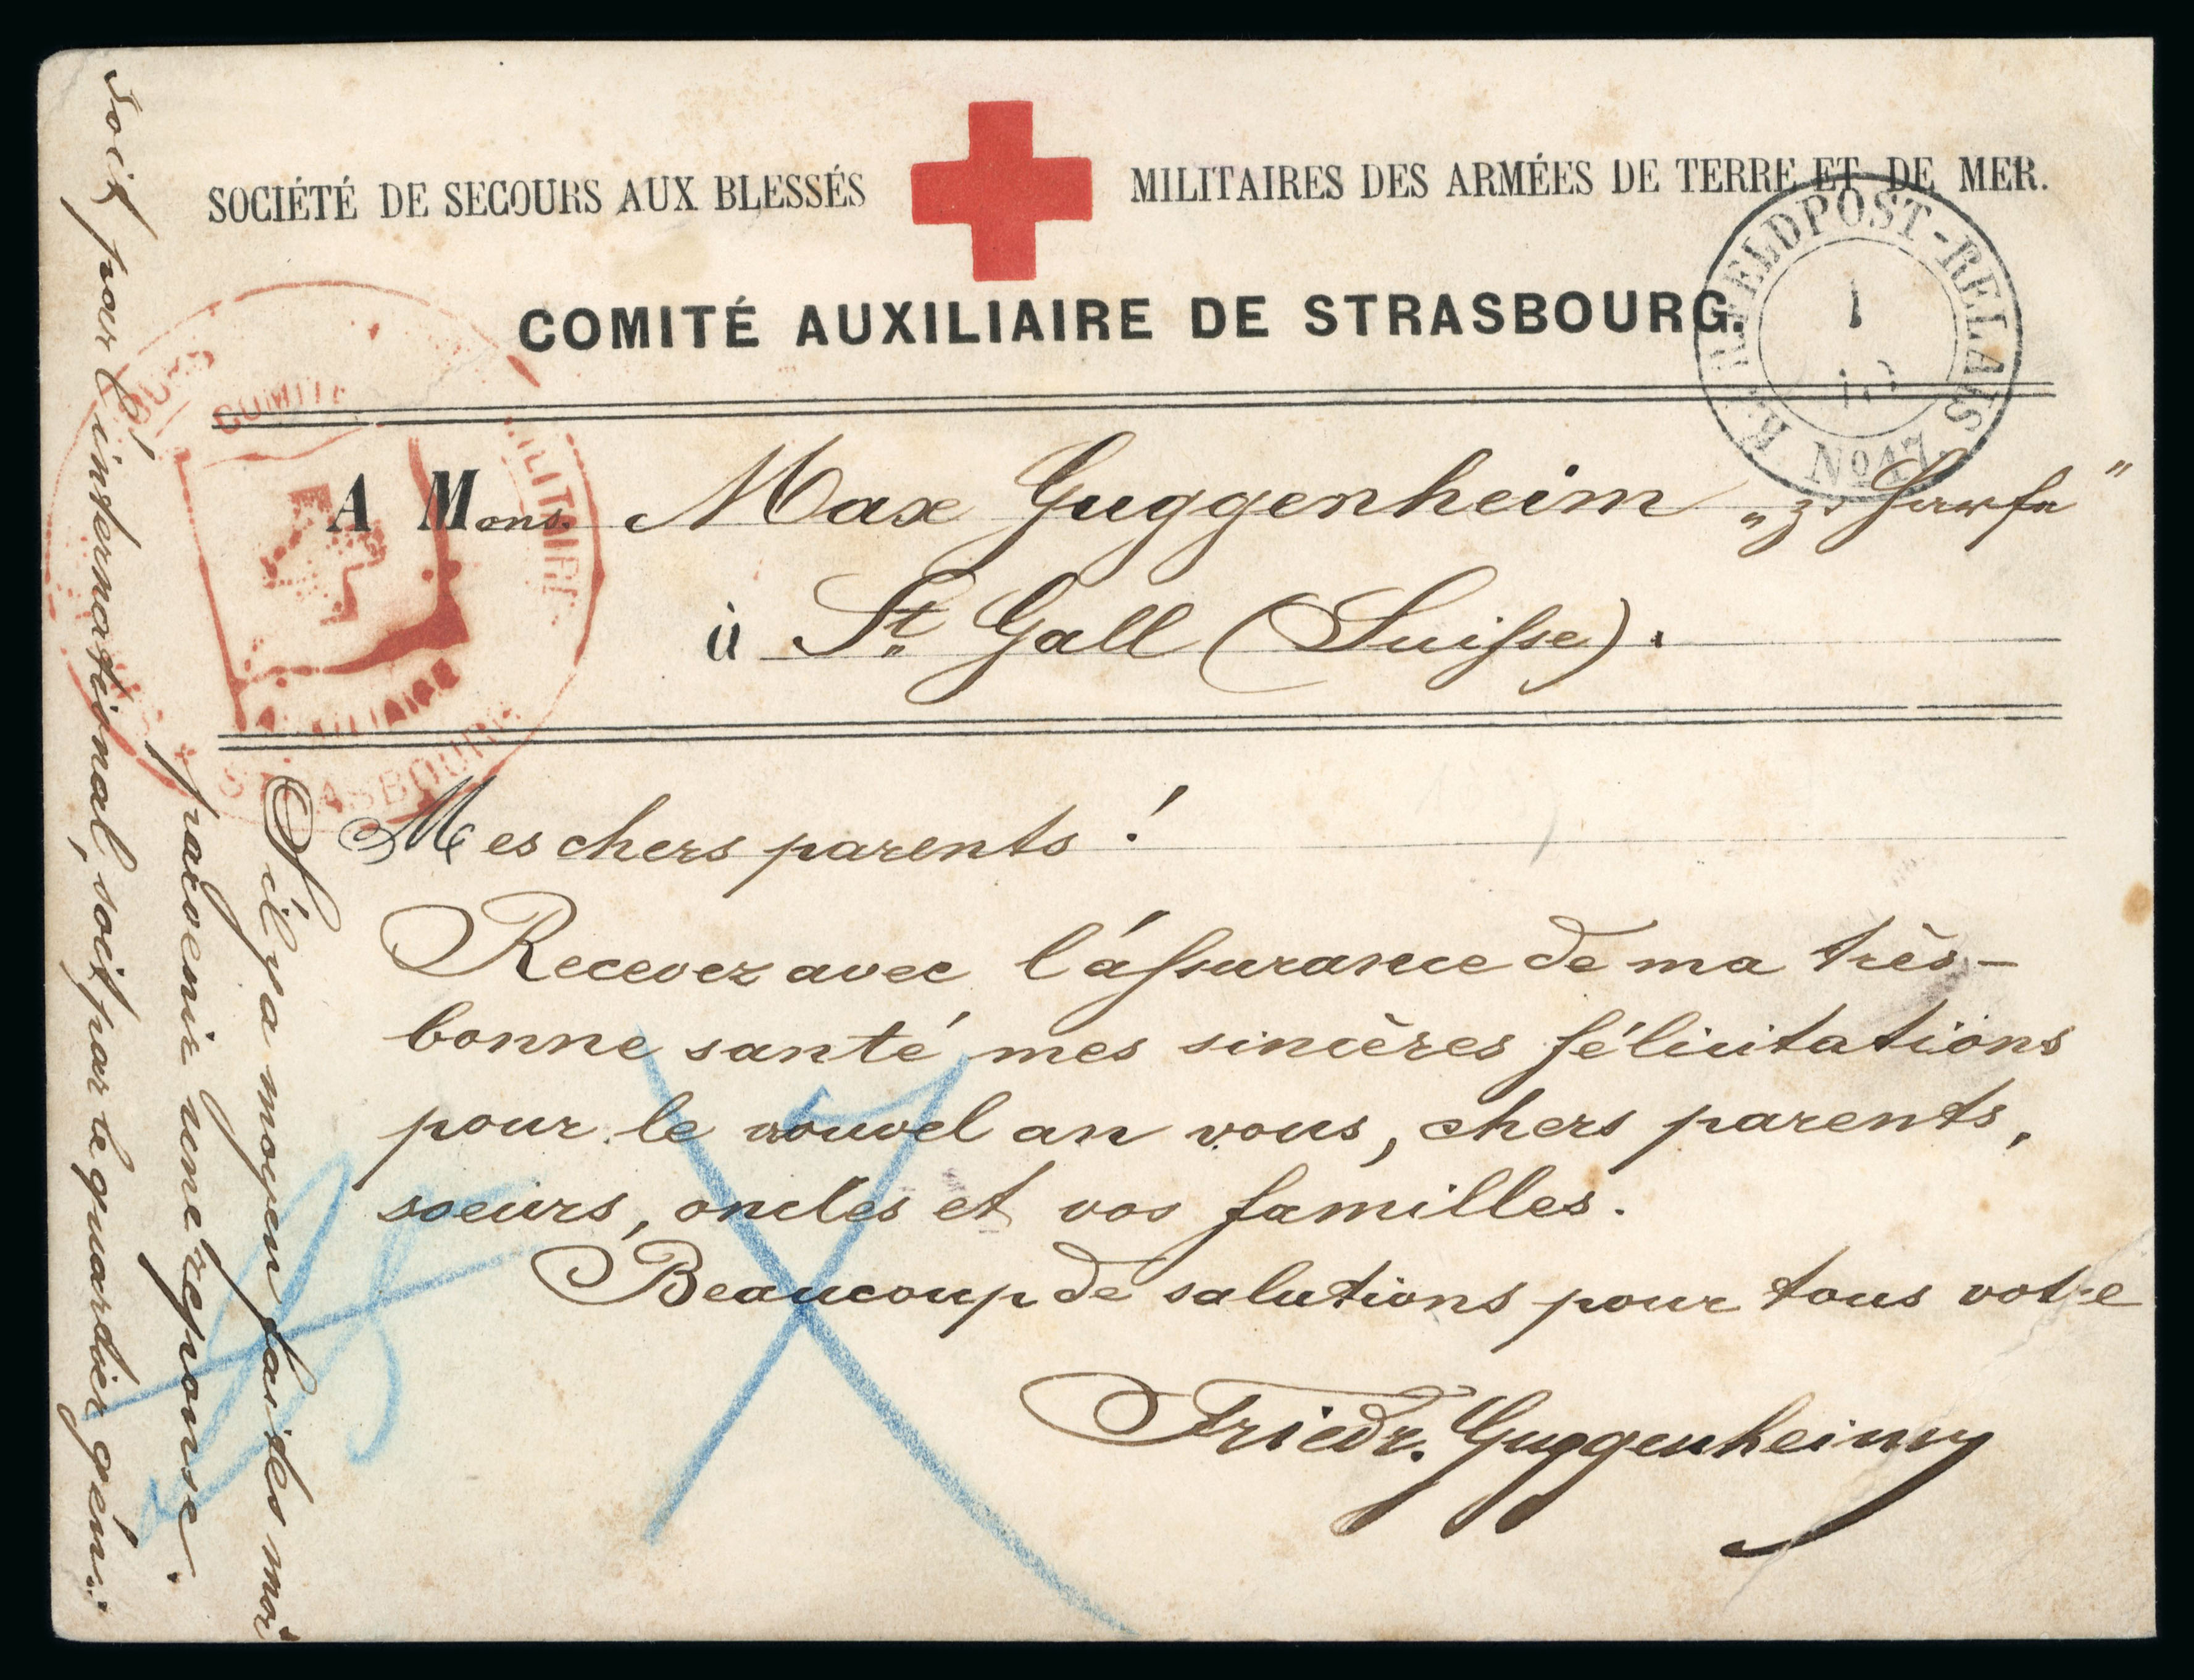 SOCIÉTÉ DE SECOURS AUX BLESSÉS MILITAIRES DES ARMÉES DE TERRE ET DE MER.
COMITÉ AUXILIAIRE DE STRASBOURG.
K. FELDPOST-RELAIS No 47.
1
COMITÉ
MILITAIRE
AUXILIAIRE
STRASBOURG
A Mons. Max Guggenheim „z.
à St. Gall (Suisse).
Mes chers parents!
Recevez avec l'assurance de ma très-
bonne santé mes sincères félicitations
pour le nouvel an vous, chers parents,
soeurs, oncles et vos familles.
Beaucoup de salutions pour tous votre
Friedr. Guggenheim
S'il y a moyen faites moi
parvenir une reponse
soit pour l'international, soit par le quardier gén.